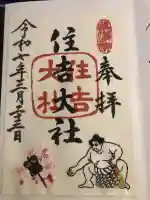 奉拝
住吉大社
住吉
大社
令和七年三月二十三日